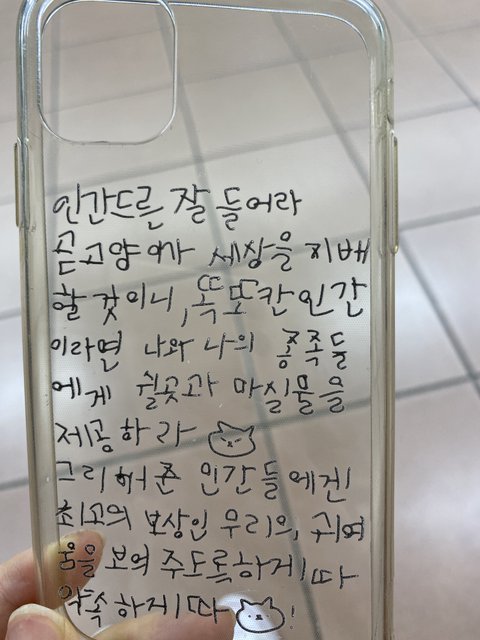 인간드른 잘 들어라
곧 고양이가 세상을 지배
할 것이니, 똑또칸 인간
이라면 나와 나의 종족들
에게 쉴곳과 마실물을
제공하라
그리하면 인간들에겐
최고의 보상인 우리의, 귀여
움을 보여주도록하게따
약속하게따!